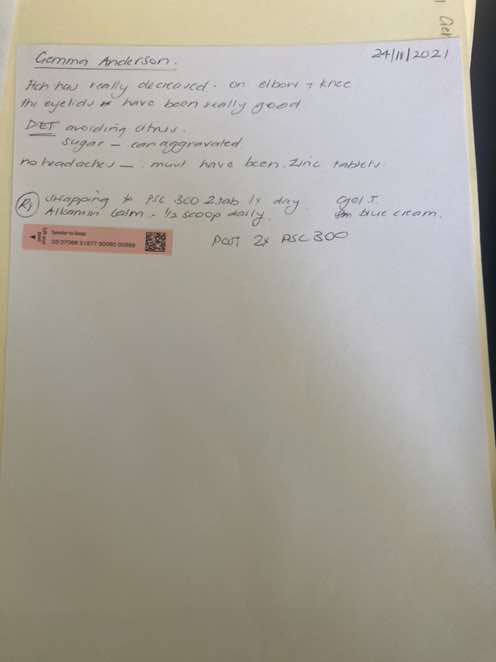 Gemma Anderson.
24/11/2021
Itch has really decreased. on elbow + knee
the eyelids have been really good
DIET avoiding citrus.
sugar - can aggravated.
no headaches - must have been zinc tablets.
Rx swapping to PSC 300 2 tab 1x day.
calm - 1/2 scoop daily.
blue cream.
Sender to keep
POST 2x PSC 300